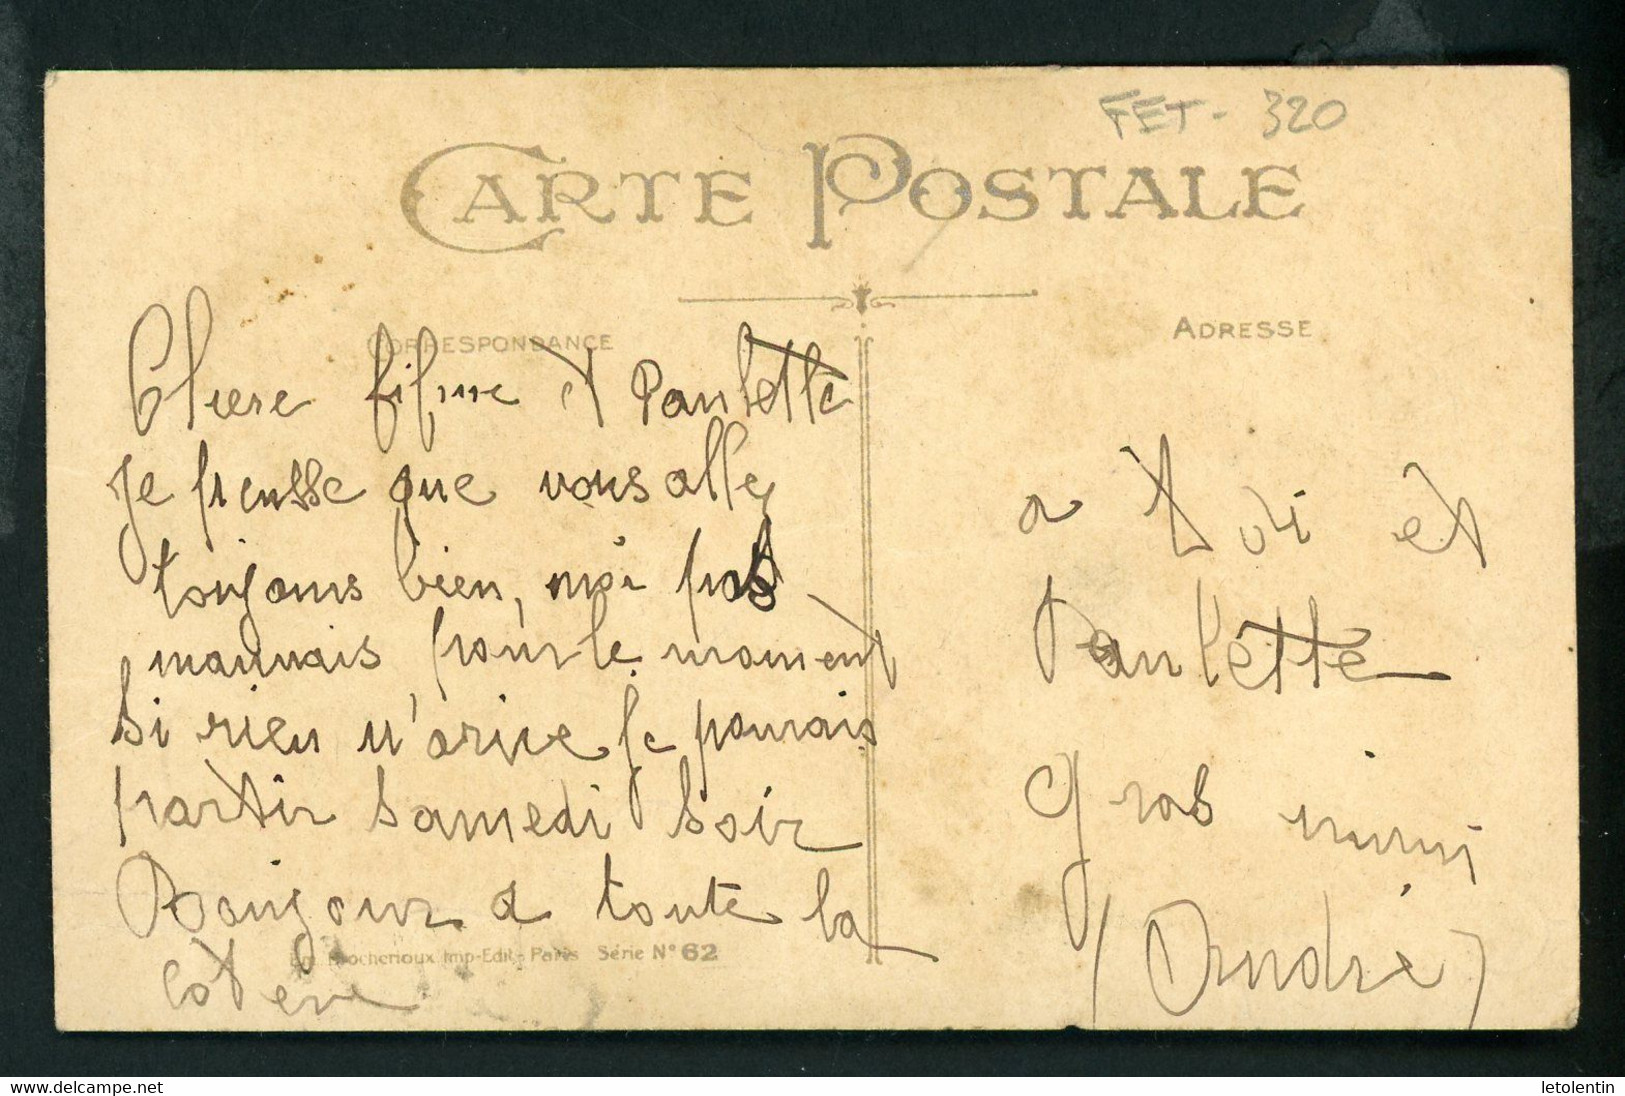 FET - 320
CARTE POSTALE
CORRESPONDANCE
ADRESSE
Chere fifine et Paulette
je pensse que vous allez
toujours bien, moi pas
mauvais pour le moment
si rien n'arive je pourais
partir samedi soir
Bonjour a toute la
coterie
a toi et
Paulette
gros mimi
(André)
Em. Rocherioux Imp-Edit - Paris Série N° 62
delcampe.net
letolentin